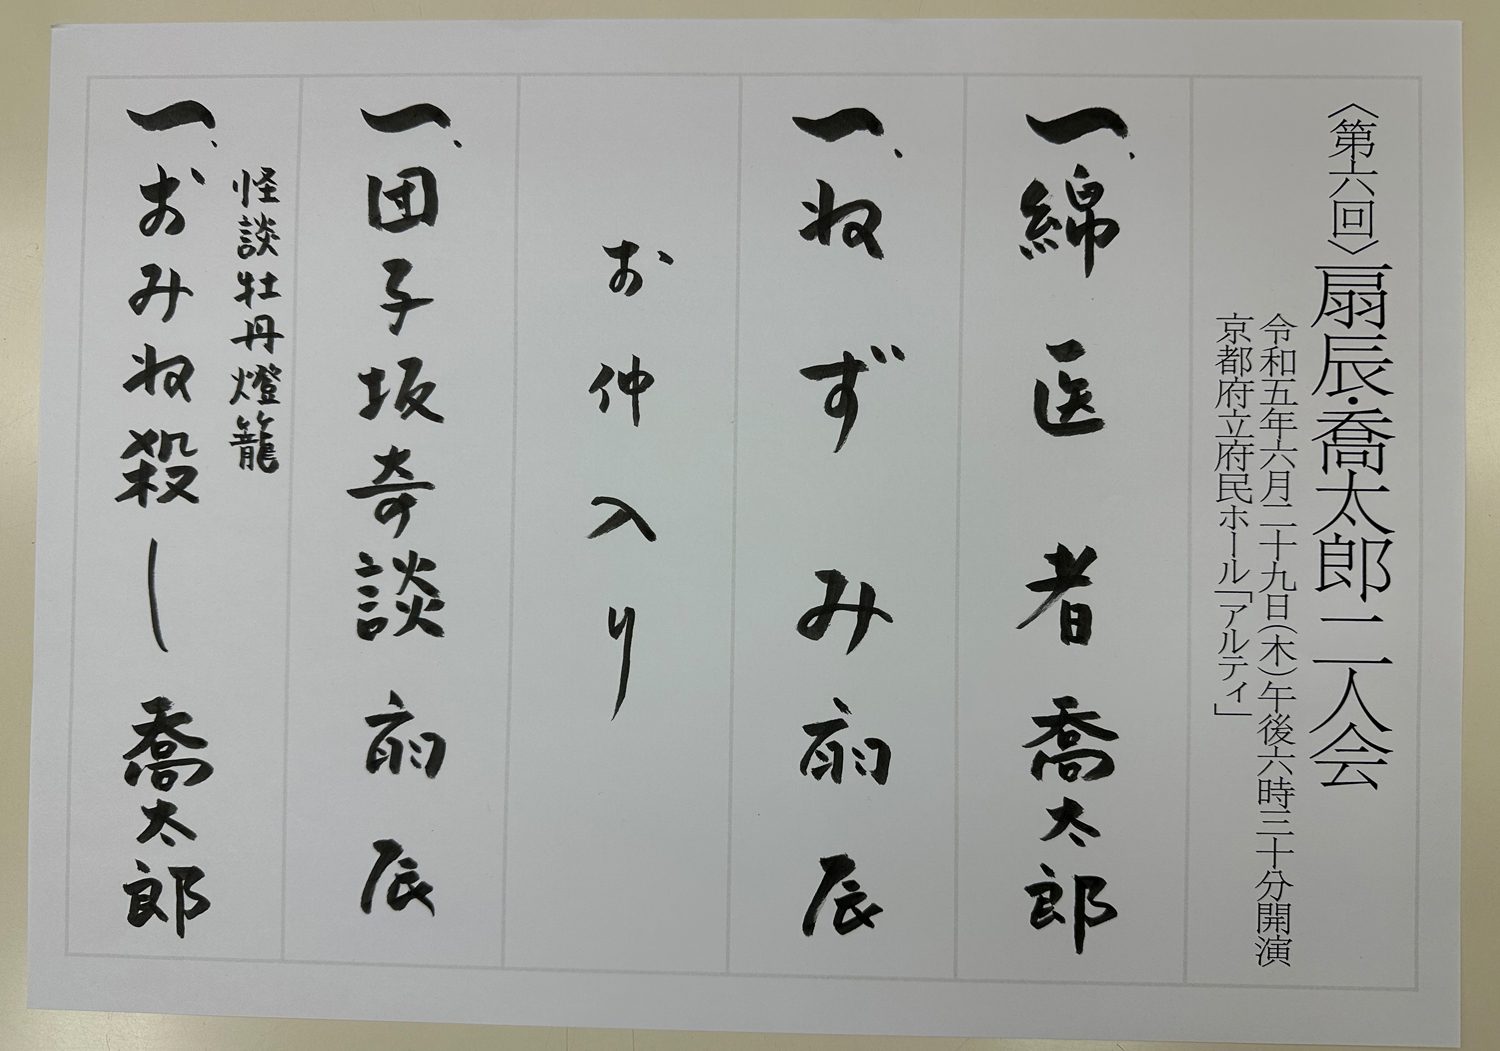 〈第六回〉扇辰・喬太郎二人会
令和五年六月二十九日(木)午後六時三十分開演
京都府立府民ホール「アルティ」
一、綿医者 喬太郎
一、ねずみ 扇辰
お仲入り
一、団子坂奇談 扇辰
怪談牡丹燈籠
一、おみね殺し 喬太郎